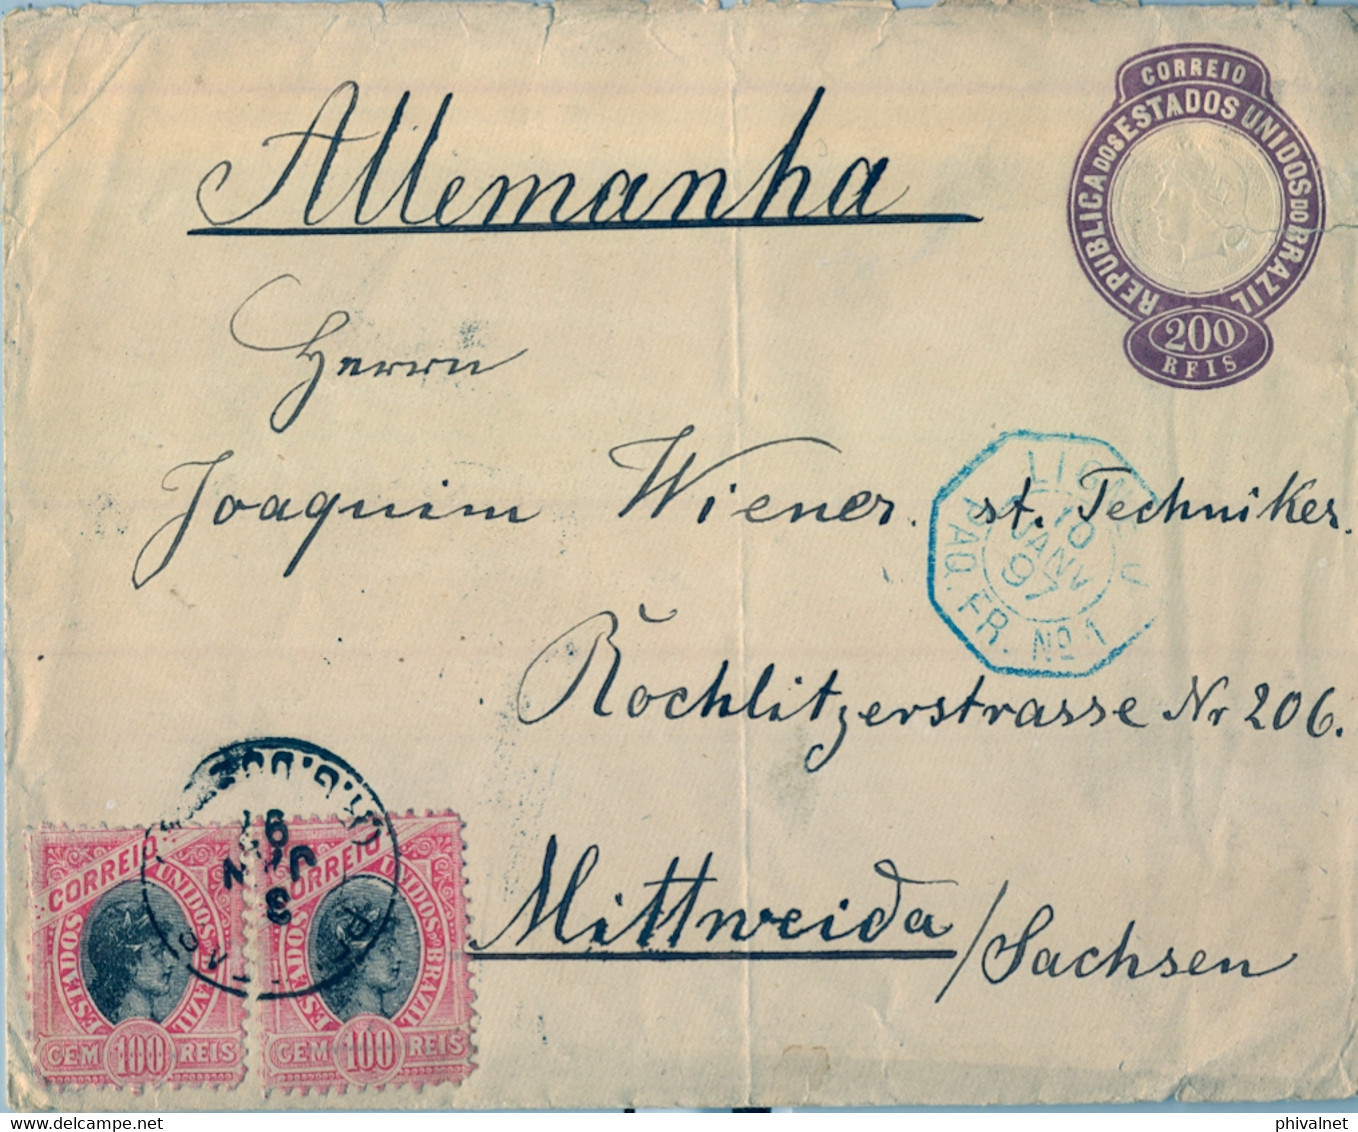 CORREIO
REPUBLICA DOS ESTADOS UNIDOS DO BRAZIL
200
REIS
Allemanha
Herrn
Joaquim Wiener. st. Techniker.
PAQ. FR. Nº 1
10
JANV
97
Röchlitzerstrasse Nr 206.
Mittweida/Sachsen
97
JAN
3
CORREIO
ESTADOS UNIDOS BRAZIL
CEM 100 REIS
CORREIO
ESTADOS UNIDOS BRAZIL
CEM 100 REIS
delcampe.net
phivalnet